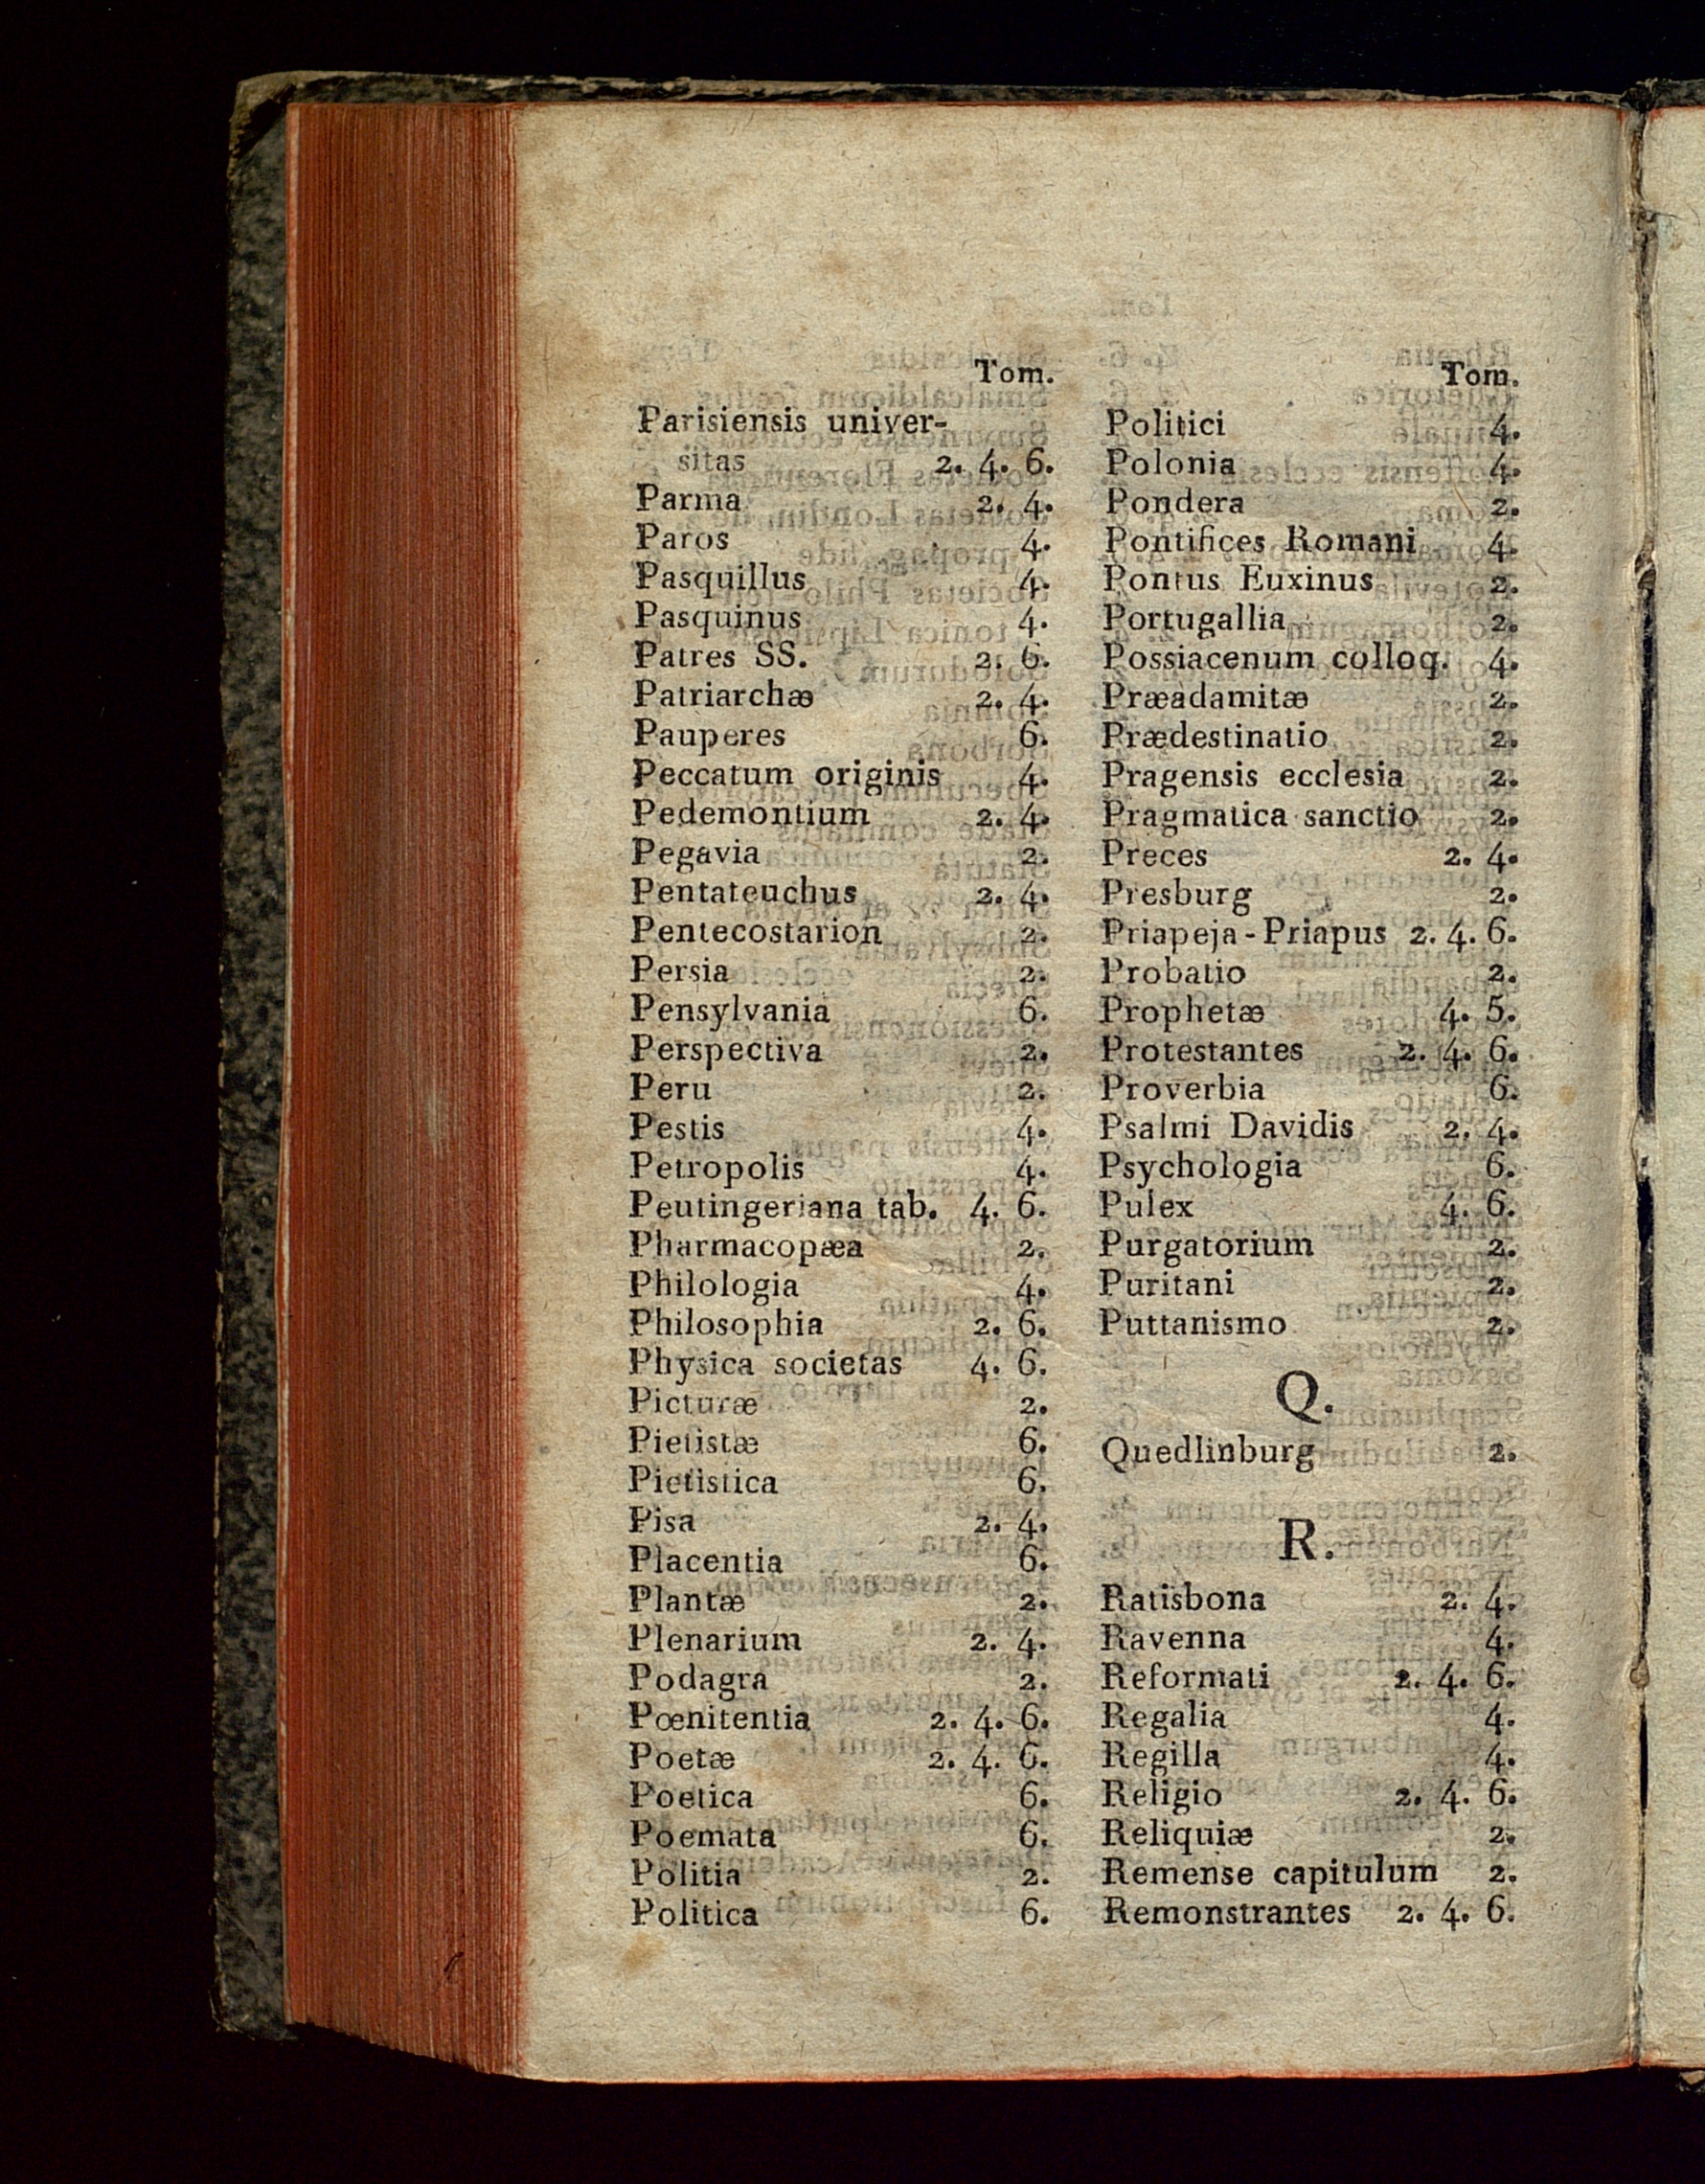 Tom.
Parisiensis univer-
sitas 2. 4. 6.
Parma 2. 4.
Paros 4.
Pasquillus 4.
Pasquinus 4.
Patres SS. 2. 6.
Patriarchæ 2. 4.
Pauperes 6.
Peccatum originis 4.
Pedemontium 2. 4.
Pegavia 2.
Pentateuchus 2. 4.
Pentecostarion 2.
Persia 2.
Pensylvania 6.
Perspectiva 2.
Peru 2.
Pestis 4.
Petropolis 4.
Peutingeriana tab. 4. 6.
Pharmacopæa 2.
Philologia 4.
Philosophia 2. 6.
Physica societas 4. 6.
Picturæ 2.
Pietistæ 6.
Pietistica 6.
Pisa 2. 4.
Placentia 6.
Plantæ 2.
Plenarium 2. 4.
Podagra 2.
Pœnitentia 2. 4. 6.
Poetæ 2. 4. 6.
Poetica 6.
Poemata 6.
Politia 2.
Politica 6.
Tom.
Politici 4.
Polonia 4.
Pondera 2.
Pontifices Romani 4.
Pontus Euxinus 2.
Portugallia 2.
Possiacenum colloq. 4.
Præadamitæ 2.
Prædestinatio 2.
Pragensis ecclesia 2.
Pragmatica sanctio 2.
Preces 2. 4.
Presburg 2.
Priapeja - Priapus 2. 4. 6.
Probatio 2.
Prophetæ 4. 5.
Protestantes 2. 4. 6.
Proverbia 6.
Psalmi Davidis 2. 4.
Psychologia 6.
Pulex 4. 6.
Purgatorium 2.
Puritani 2.
Puttanismo 2.
Q.
Quedlinburg 2.
R.
Ratisbona 2. 4.
Ravenna 4.
Reformati 2. 4. 6.
Regalia 4.
Regilla 4.
Religio 2. 4. 6.
Reliquiæ 2.
Remense capitulum 2.
Remonstrantes 2. 4. 6.